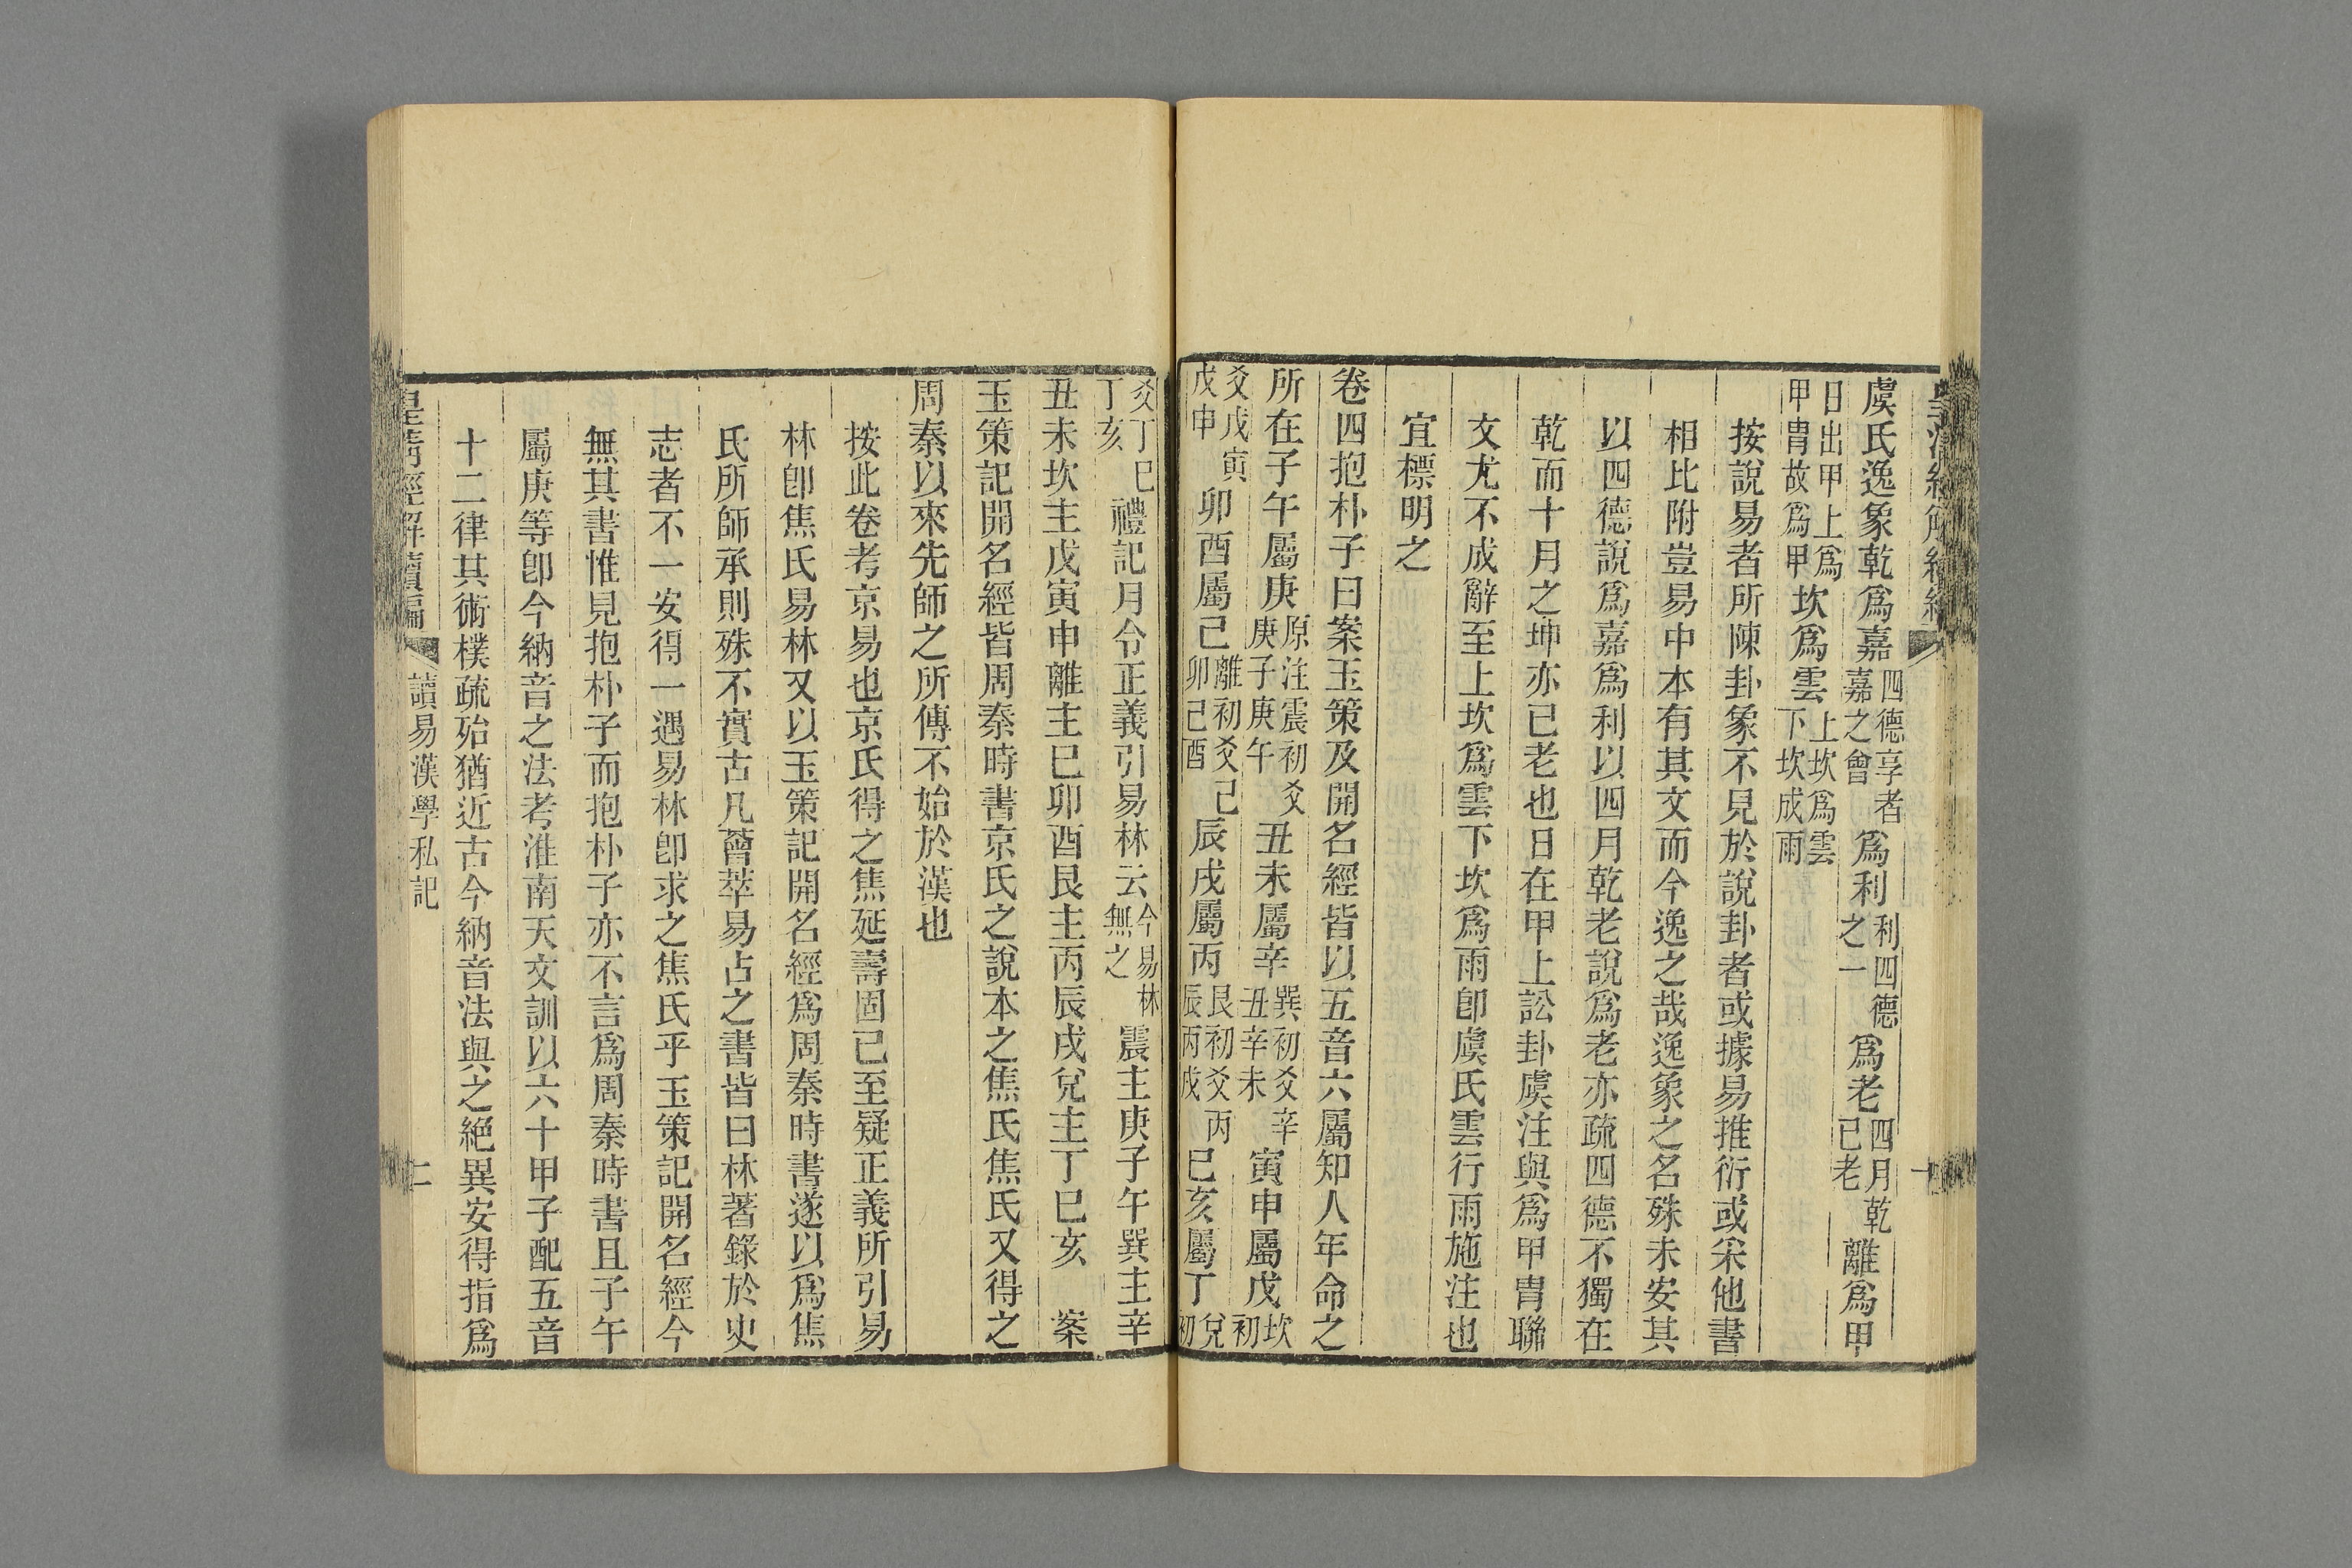 虞氏逸象乾爲嘉四德亨者嘉之會爲利利四德之一爲老四月乾已老離爲甲
日出甲上爲甲胄故爲甲坎爲雲上坎爲雲下坎成雨
按說易者所陳卦象不見於說卦者或據易推衍或采他書
相比附豈易中本有其文而今逸之哉逸象之名殊未安其
以四德說爲嘉爲利以四月乾老說爲老亦疏四德不獨在
乾而十月之坤亦已老也日在甲上訟卦虞注與爲甲胄聯
文尤不成辭至上坎爲雲下坎爲雨卽虞氏雲行雨施注也
宜標明之
卷四抱朴子曰案玉策及開名經皆以五音六屬知人年命之
所在子午屬庚原注震初爻庚子庚午丑未屬辛巽初爻辛丑辛未寅申屬戊坎初
爻戊寅戊申卯酉屬己離初爻己卯己酉辰戌屬丙艮初爻丙辰丙戌巳亥屬丁兌初
爻丁巳丁亥禮記月令正義引易林云今易林無之震主庚子午巽主辛
丑未坎主戊寅申離主巳卯酉艮主丙辰戌兌主丁巳亥 案
玉策記開名經皆周秦時書京氏之說本之焦氏焦氏又得之
周秦以來先師之所傳不始於漢也
按此卷考京易也京氏得之焦延壽固已至疑正義所引易
林卽焦氏易林又以玉策記開名經爲周秦時書遂以爲焦
氏所師承則殊不實古凡薈萃易占之書皆曰林著錄於史
志者不一安得一遇易林卽求之焦氏乎玉策記開名經今
無其書惟見抱朴子而抱朴子亦不言爲周秦時書且子午
屬庚等卽今納音之法考淮南天文訓以六十甲子配五音
十二律其術樸疏殆猶近古今納音法與之絕異安得指爲
皇清經解續編 讀易漢學私記 二